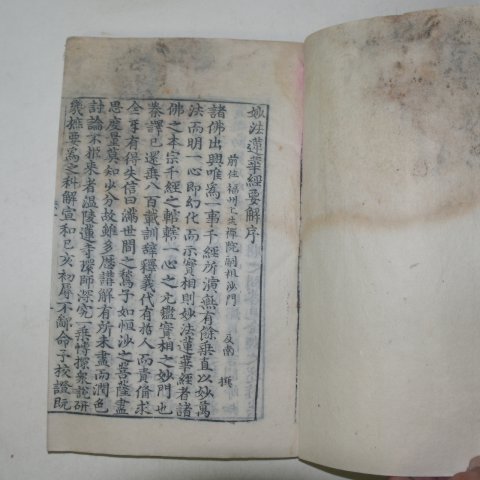 妙法蓮華經要解序
前住福州上生禪院嗣祖沙門 及南 撰
諸佛出興唯爲一事千經所演無有餘乘直以妙萬
法而明一心即幻化而示實相則妙法蓮華經者諸
佛之本宗千經之轄轄一心之元鑑實相之妙門也
秦譯已還幾八百載訓辭釋義代有哲人而責脩求
全了有得失信曰滿世間之鶖子如恒沙之菩薩盡
思度量莫知少分故雖多曆講解有所未盡而潤色
討論不無來者溫陵蓮寺環師深究一乘博探衆說研
幾摭要爲之科解宣和己亥初屬不鄙命予校證既